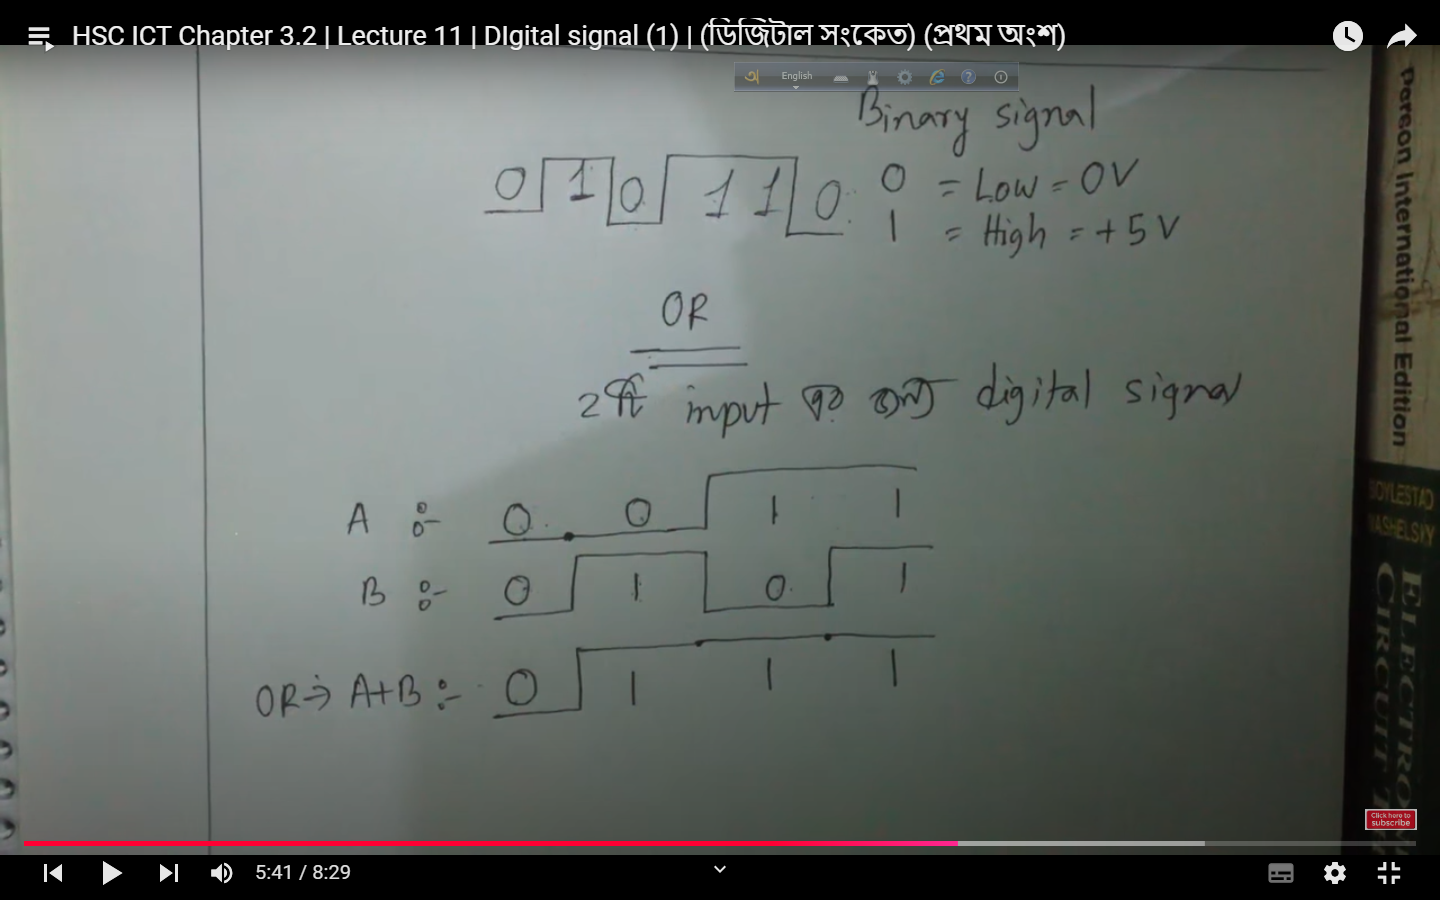 HSC ICT Chapter 3.2 | Lecture 11 | DIgital signal (1) | (ডিজিটাল সংকেত) (প্রথম অংশ)
অ English
Binary signal
0 1 0 1 1 0
0 = Low = 0V
1 = High = +5V
OR
2টি input এর জন্য digital signal
A :- 0 0 1 1
B :- 0 1 0 1
OR→ A+B :- 0 1 1 1
Pearson International Edition
BOYLESTAD
NASHELSKY
ELECTRO
CIRCUIT T
Click here to
subscribe
5:41 / 8:29